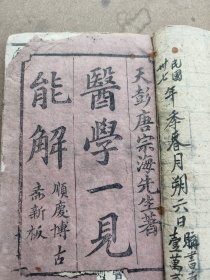 民國
卅七年季春月朔六日購書
壹萬
天彭唐宗海先生著
醫學一見
能解
順慶博古
斋新板